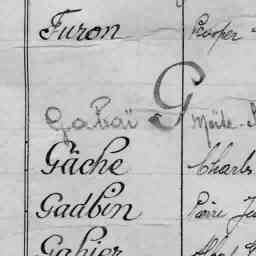 Furon Prosper
G
Gabaï Moïse
Gäche Charles
Gadbin Pierre Ju
Gahier